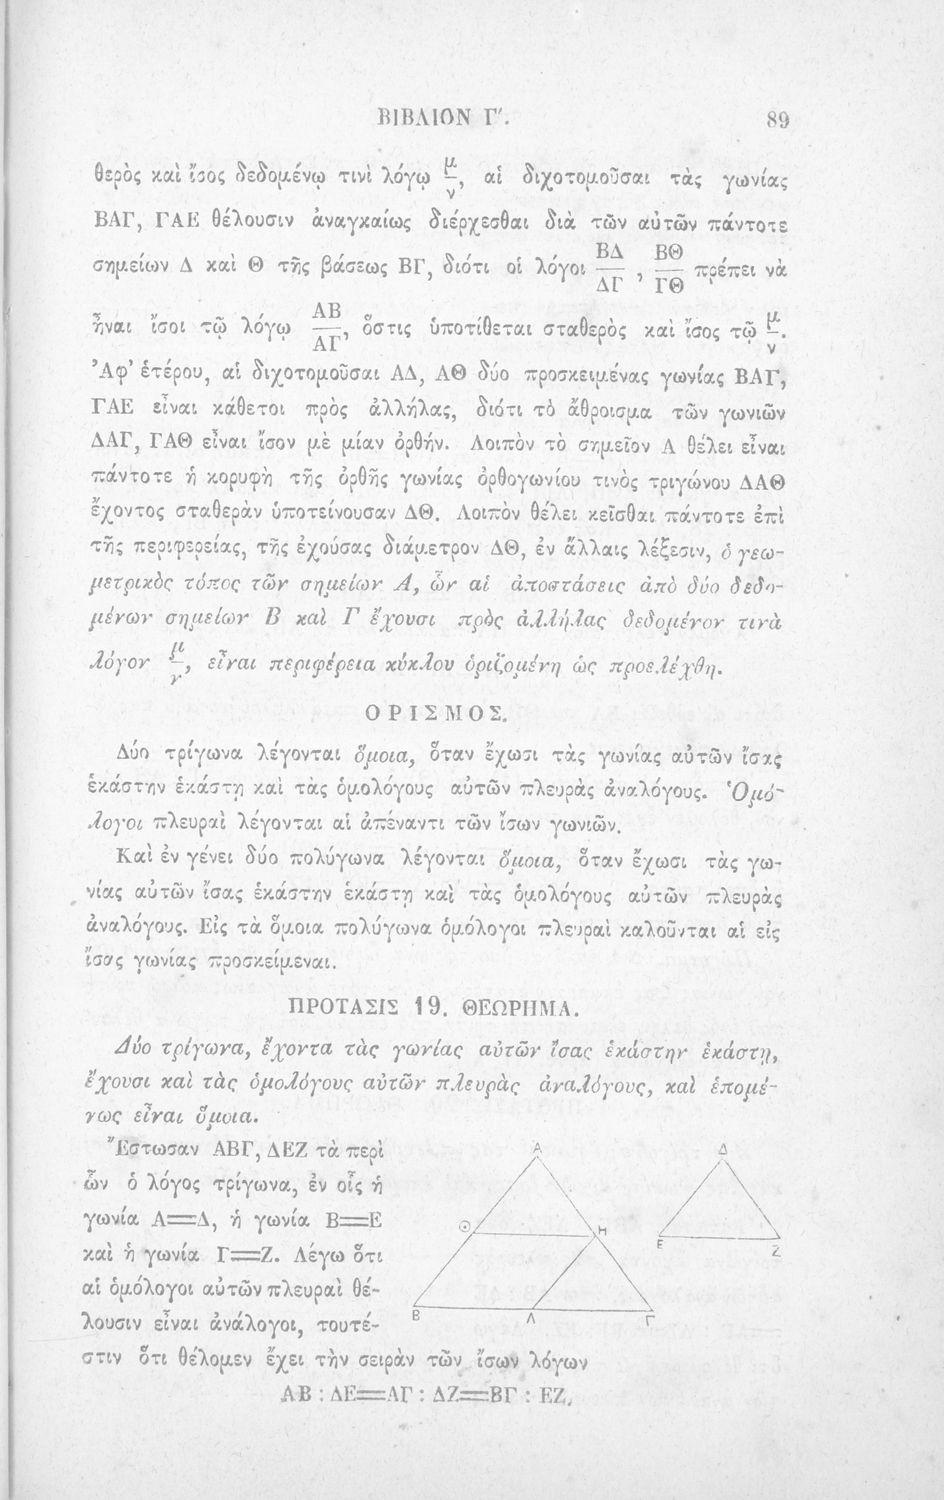 ΒΙΒΛΙΟΝ Γ'. 89
θερὸς καὶ ἴσος δεδομένῳ τινὶ λόγῳ μ/ν, αἱ διχοτομοῦσαι τὰς γωνίας
ΒΑΓ, ΓΑΕ θέλουσιν ἀναγκαίως διέρχεσθαι διὰ τῶν αὐτῶν πάντοτε
σημείων Δ καὶ Θ τῆς βάσεως ΒΓ, διότι οἱ λόγοι ΒΔ/ΔΓ , ΒΘ/ΓΘ πρέπει νὰ
ἦναι ἴσοι τῷ λόγῳ ΑΒ/ΑΓ, ὅστις ὑποτίθεται σταθερὸς καὶ ἴσος τῷ μ/ν.
Ἀφ' ἑτέρου, αἱ διχοτομοῦσαι ΑΔ, ΑΘ δύο προσκειμένας γωνίας ΒΑΓ,
ΓΑΕ εἶναι κάθετοι πρὸς ἀλλήλας, διότι τὸ ἄθροισμα τῶν γωνιῶν
ΔΑΓ, ΓΑΘ εἶναι ἴσον μὲ μίαν ὀρθήν. Λοιπὸν τὸ σημεῖον Α θέλει εἶναι
πάντοτε ἡ κορυφὴ τῆς ὀρθῆς γωνίας ὀρθογωνίου τινὸς τριγώνου ΔΑΘ
ἔχοντος σταθερὰν ὑποτείνουσαν ΔΘ. Λοιπὸν θέλει κεῖσθαι πάντοτε ἐπὶ
τῆς περιφερείας, τῆς ἐχούσας διάμετρον ΔΘ, ἐν ἄλλαις λέξεσιν, ὁ γεω-
μετρικὸς τόπος τῶν σημείων Α, ὧν αἱ ἀποστάσεις ἀπὸ δύο δεδο-
μένων σημείων Β καὶ Γ ἔχουσι πρὸς ἀλλήλας δεδομένον τινὰ
λόγον μ/ν, εἶναι περιφέρεια κύκλου ὁριζομένη ὡς προελέχθη.
ΟΡΙΣΜΟΣ.
Δύο τρίγωνα λέγονται ὅμοια, ὅταν ἔχωσι τὰς γωνίας αὐτῶν ἴσας
ἑκάστην ἑκάστῃ καὶ τὰς ὁμολόγους αὐτῶν πλευρὰς ἀναλόγους. Ὁμό-
λογοι πλευραὶ λέγονται αἱ ἀπέναντι τῶν ἴσων γωνιῶν.
Καὶ ἐν γένει δύο πολύγωνα λέγονται ὅμοια, ὅταν ἔχωσι τὰς γω-
νίας αὐτῶν ἴσας ἑκάστην ἑκάστῃ καὶ τὰς ὁμολόγους αὐτῶν πλευρὰς
ἀναλόγους. Εἰς τὰ ὅμοια πολύγωνα ὁμόλογοι πλευραὶ καλοῦνται αἱ εἰς
ἴσας γωνίας προσκείμεναι.
ΠΡΟΤΑΣΙΣ 19. ΘΕΩΡΗΜΑ.
Δύο τρίγωνα, ἔχοντα τὰς γωνίας αὐτῶν ἴσας ἑκάστην ἑκάστῃ,
ἔχουσι καὶ τὰς ὁμολόγους αὐτῶν πλευρὰς ἀναλόγους, καὶ ἑπομέ-
νως εἶναι ὅμοια.
Ἔστωσαν ΑΒΓ, ΔΕΖ τὰ περὶ
ὧν ὁ λόγος τρίγωνα, ἐν οἷς ἡ
γωνία Α=Δ, ἡ γωνία Β=Ε
καὶ ἡ γωνία Γ=Ζ. Λέγω ὅτι
αἱ ὁμόλογοι αὐτῶν πλευραὶ θέ-
λουσιν εἶναι ἀνάλογοι, τουτέ-
στιν ὅτι θέλομεν ἔχει τὴν σειρὰν τῶν ἴσων λόγων
ΑΒ : ΔΕ=ΑΓ : ΔΖ=ΒΓ : ΕΖ,
Α Δ
Θ Η Ε Ζ
Β Λ Γ